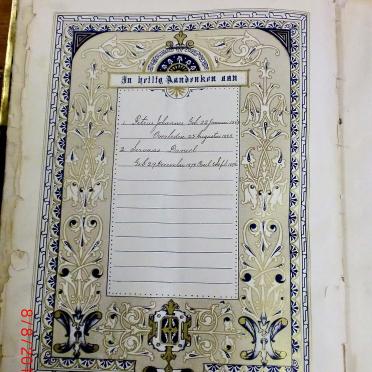 In heilig Aandenken aan
1. Petrus Johannes Geb. 22 Januarie
Overleden 27 Augustus 1885
2. Servaas Daniel
Geb 29 December 1879
8/8/20